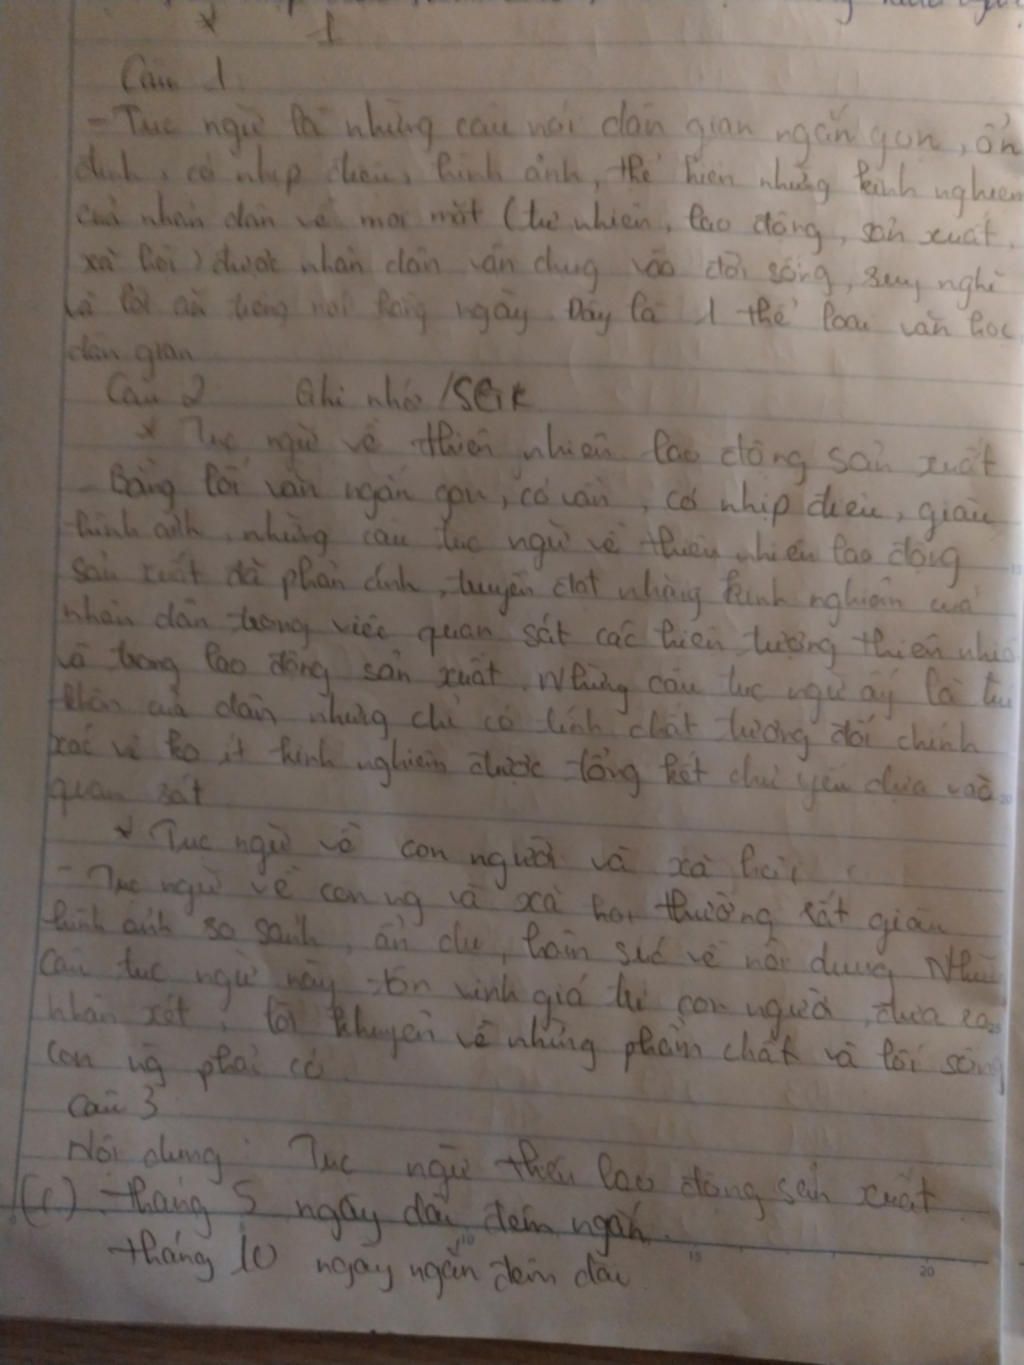 1
Câu 1
- Tục ngữ là những câu nói dân gian ngắn gọn, ổn
định, có nhịp điệu, hình ảnh, thể hiện những kinh nghiệm
của nhân dân về mọi mặt (tự nhiên, lao động, sản xuất,
xã hội) được nhân dân vận dụng vào đời sống, suy nghĩ
và lời ăn tiếng nói hàng ngày. Đây là 1 thể loại văn học
dân gian
Câu 2 Ghi nhớ /SGK
* Tục ngữ về thiên nhiên lao động sản xuất
- Bằng lối văn ngắn gọn, có vần, có nhịp điệu, giàu
hình ảnh, những câu tục ngữ về thiên nhiên lao động
sản xuất đã phản ánh, truyền đạt những kinh nghiệm của
nhân dân trong việc quan sát các hiện tượng thiên nhiê
và trong lao động sản xuất. Những câu tục ngữ ấy là tú
khôn của dân nhưng chỉ có tính chất tương đối chính
xác vì ko ít kinh nghiệm được tổng kết chủ yếu dựa vào
quan sát
* Tục ngữ về con người và xã hội
- Tục ngữ về con ng và xã hội thường rất giàu
hình ảnh so sánh, ẩn dụ, hàm súc về nội dung. Nhữ
câu tục ngữ này tôn vinh giá trị con người, đưa ra
nhận xét, lời khuyên về những phẩm chất và lối sống
con ng phải có
Câu 3
Nội dung: Tục ngữ lao động sản xuất
tháng 5 ngày dài đêm ngắn.
tháng 10 ngày ngắn đêm dài